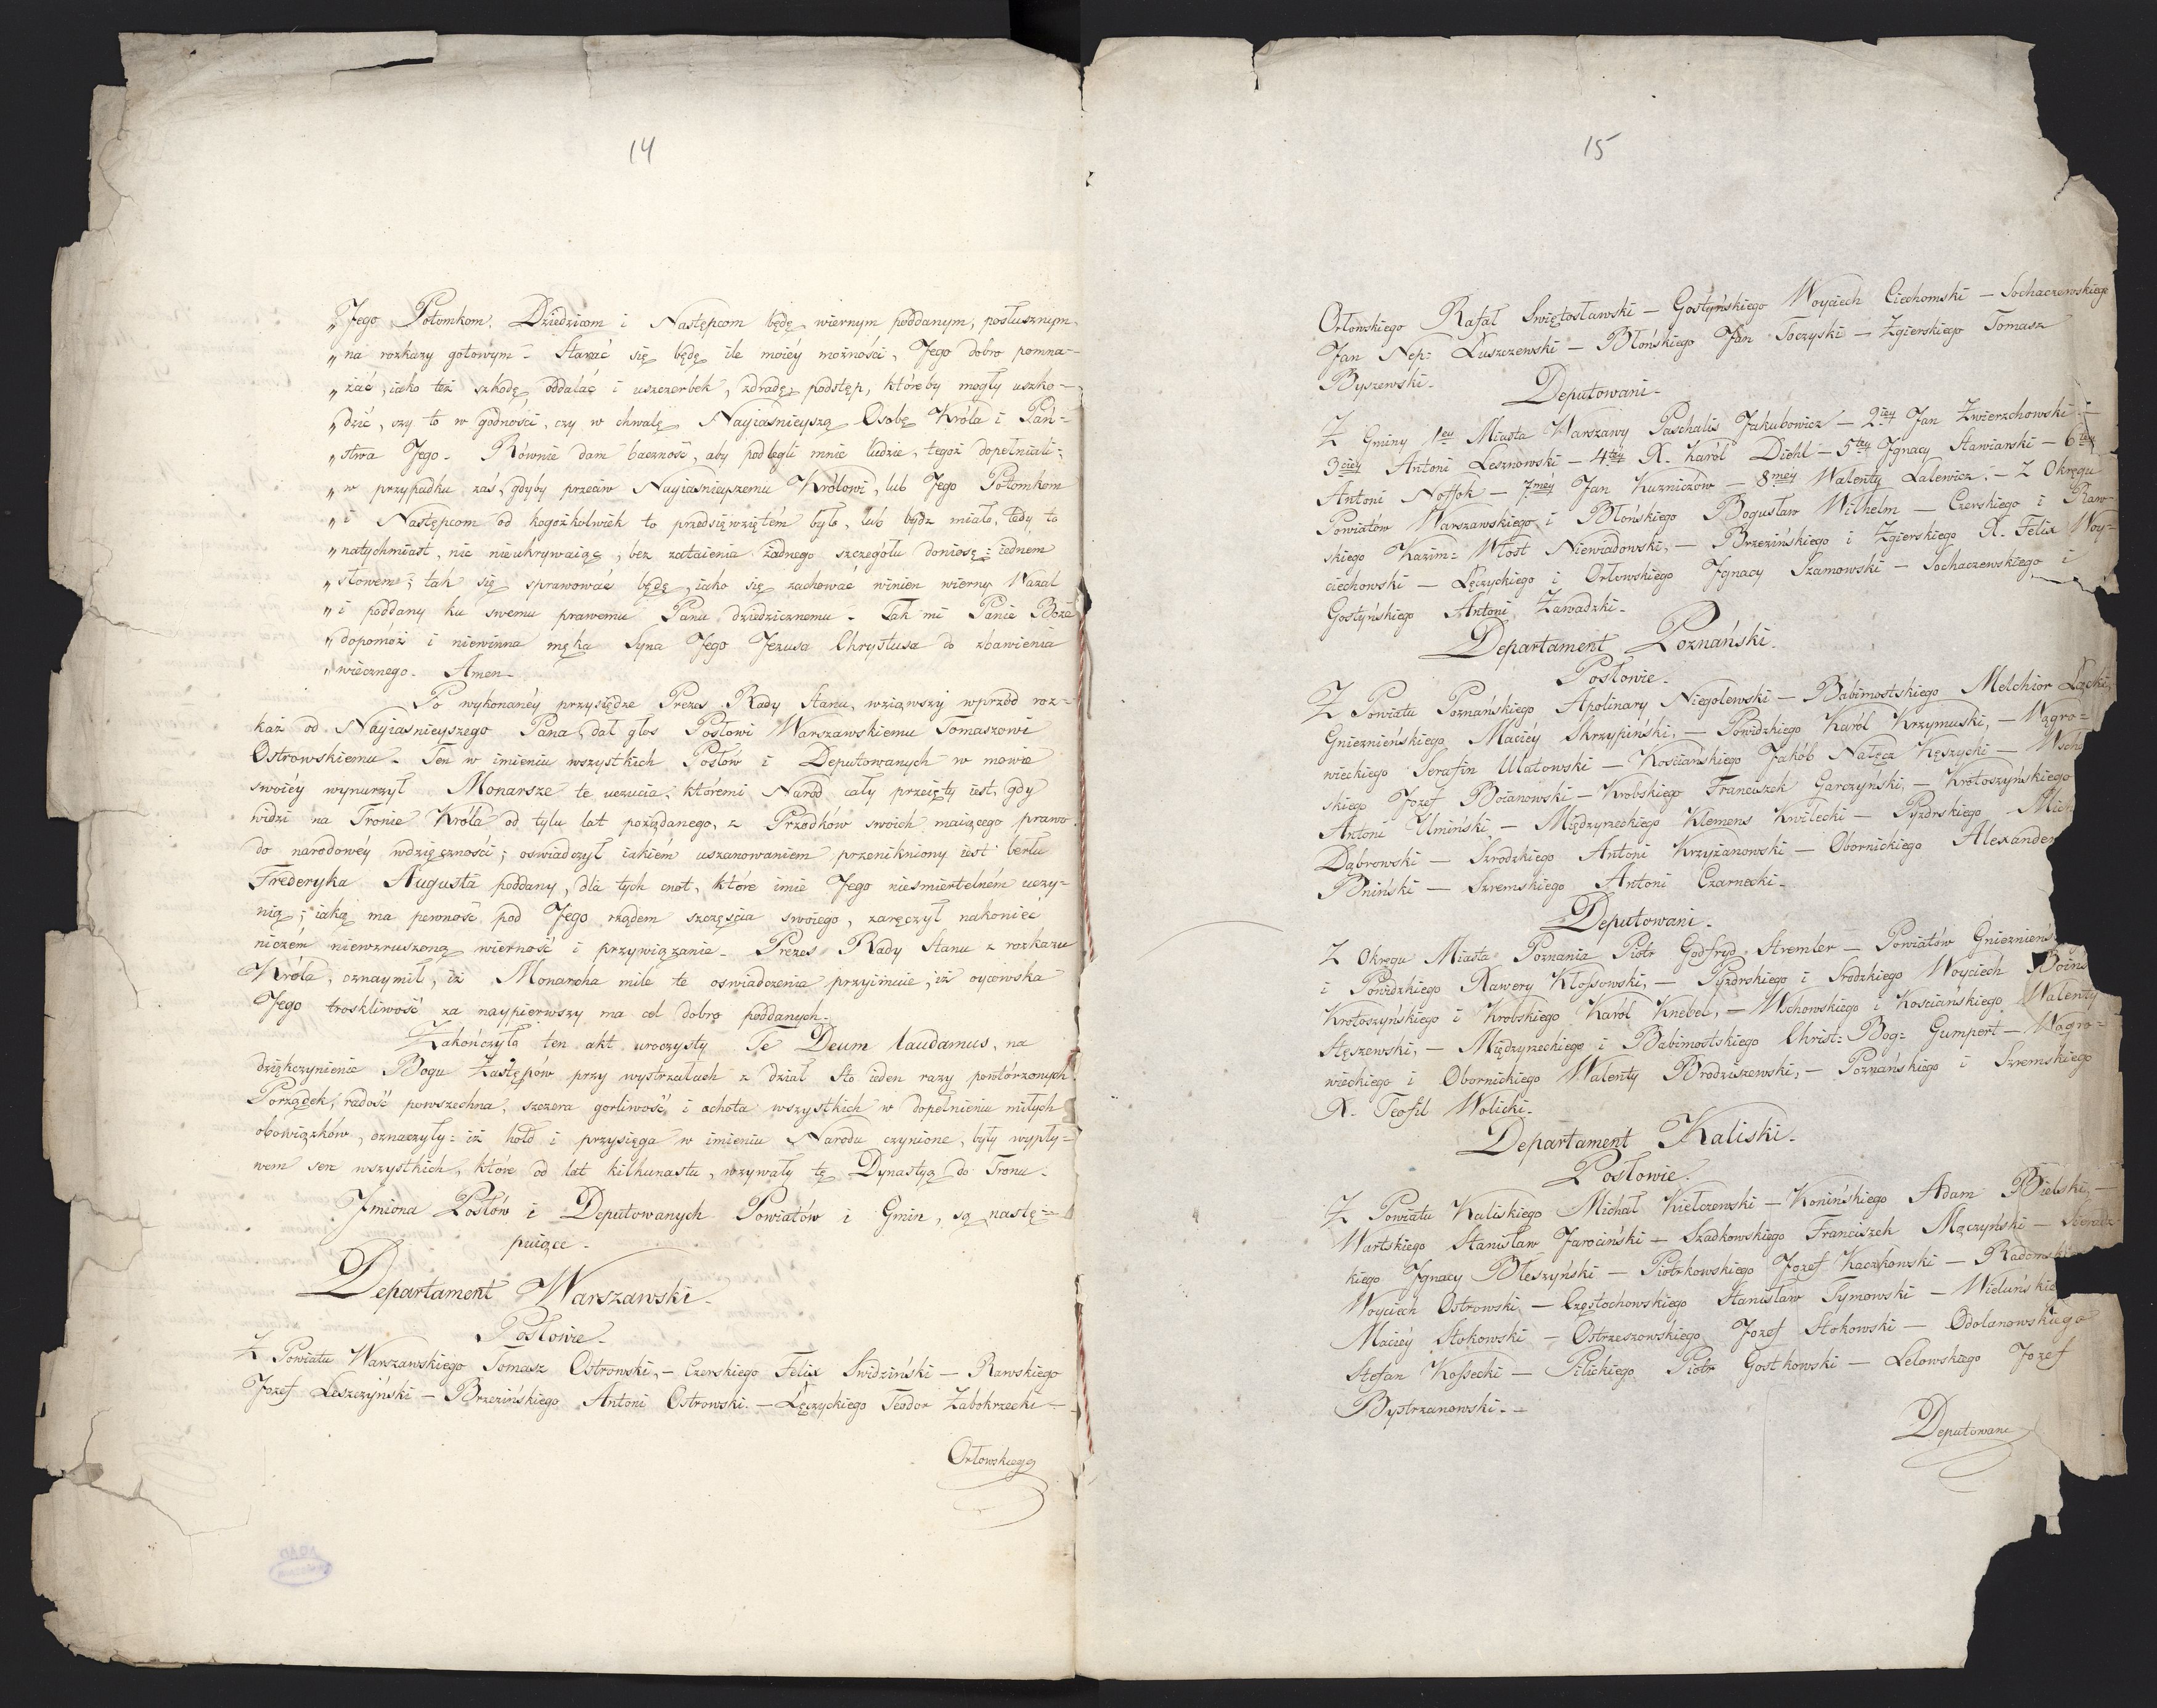 14
„Jego Potomkom, Dziedzicom i Następcom będę wiernym poddanym, posłusznym
„na rozkazy gotowym. Starać się będę ile moiéy możności, Jego dobro pomna-
„żać, iako też szkodę oddalać i uszczerbek, zdradę, podstęp, któreby mogły uszko-
„dzić, czy to w godności, czy w chwalę Nayiasnieyszą Osobę Króla i Pań-
„stwa Jego. Równie dam baczność, aby podlegli mnie ludzie, tegoż dopełniali;
„w przypadku zaś, gdyby przeciw Nayiasnieyszemu Królowi, lub Jego Potomkom
„i Następcom od kogożkolwiek to przedsięwziętém było, lub bydz miało, tedy to
„natychmiast, nic nieukrywaiąc, bez zataienia żadnego szczegółu doniosę; iedném
„słowem; tak się sprawować będę, iako się zachować winien wierny Wazal
„i poddany ku swemu prawemu Panu dziedzicznemu. Tak mi Panie Boże
„dopomóż i niewinna męka Syna Jego Jezusa Chrystusa do zbawienia
„wiecznego. Amen.
Po wykonanéy przysiędze Prezes Rady Stanu, wziąwszy wprzód roz-
kaz od Nayiasnieyszego Pana, dał głos Posłowi Warszawskiemu Tomaszowi
Ostrowskiemu. Ten w imieniu wszystkich Posłów i Deputowanych w mowie
swoiéy wynurzył Monarsze te uczucia, któremi Naród cały przeięty iest, gdy
widzi na Tronie Króla od tylu lat pożądanego, z Przodków swoich maiącego prawo
do narodowéy wdzięczności; oswiadczył iakiém uszanowaniem przenikniony iest berłu
Fréderyka Augusta poddany, dla tych cnot, które imie Jego niesmiertelném uczy-
nią; iaką ma pewność pod Jego rządem szczęścia swoiego, zaręczył nakoniec
niczém niewzruszoną wierność i przywiązanie. Prezes Rady Stanu z rozkazu
Króla, oznaymił, iż Monarcha mile te oswiadczenia przyimuie, iż oycowska
Jego troskliwość za naypierwszy ma cel dobro poddanych.
Zakończyło ten akt uroczysty Te Deum laudamus, na
dziękczynienie Bogu Zastępów przy wystrzałach z dział sto ieden razy powtórzonych.
Porządek, radość powszechna, szczera gorliwość i ochota wszystkich w dopełnieniu miłych
obowiązków, oznaczyły: iż hołd i przysięga w imieniu Narodu czynione, były wypły-
wem serc wszystkich, które od lat kilkunastu, wzywały tę Dynastyą do Tronu.
Jmiona Posłów i Deputowanych Powiatów i Gmin, są nastę-
puiące.
Departament Warszawski.
Posłowie.
Z Powiatu Warszawskiego Tomasz Ostrowski, – Czerskiego Felix Swidziński – Rawskiego
Jozef Leszczyński – Brzezińskiego Antoni Ostrowski. – Łęczyckiego Teodor Zabokrzecki –
Orłowskiego
15
Orłowskiego Rafał Swiętosławski – Gostyńskiego Woyciech Ciechomski – Sochaczewskiego
Jan Nep: Łuszczewski – Błońskiego Jan Toczyski – Zgierskiego Tomasz
Byszewski.
Deputowani.
Z Gminy 1ey Miasta Warszawy Paschalis Jakubowicz – 2iey Jan Zwierzchowski –
3ciey Antoni Lesznowski – 4tey X. Karól Diehl – 5tey Jgnacy Stawiarski – 6tey
Antoni Noffok – 7mey Jan Kuzniczow – 8mey Walenty Lalewicz. – Z Okręgu
Powiatów Warszawskiego i Błońskiego Bogusław Wilhelm – Czerskiego i Raw-
skiego Kazim: Włost Niewiadowski, – Brzezińskiego i Zgierskiego X. Felix Woy-
ciechowski – Łęczyckiego i Orłowskiego Jgnacy Szamowski – Sochaczewskiego i
Gostyńskiego Antoni Zawadzki.
Departament Poznański.
Posłowie.
Z Powiatu Poznańskiego Apolinary Niegolewski – Babimostskiego Melchior Łącki,
Gnieznieńskiego Maciéy Skrzypiński, – Powidzkiego Karól Krzymuski, – Wągro-
wieckiego Serafin Ulatowski – Kościańskiego Jakób Nałęcz Kęszycki – Wscho
skiego Jozef Boianowski – Krobskiego Franciszek Garczyński, – Krotoszyńskiego
Antoni Umiński, – Międzyrzeckiego Klemens Kwilecki – Pyzdrskiego Mich
Dąbrowski – Szrodzkiego Antoni Krzyżanowski – Obornickiego Alexander
Bniński – Szremskiego Antoni Czarnecki.
Deputowani.
Z Okręgu Miasta Poznania Piotr Godfryd Stremler – Powiatów Gniezniens
i Powidzkiego Xawery Kłossowski, – Pyzdrskiego i Srodzkiego Woyciech Boińs
Krotoszyńskiego i Krobskiego Karól Knebel, – Wschowskiego i Kościańskiego Walenty
Stęszewski, – Międzyrzeckiego i Babimostskiego Christ: Bog: Gumpert – Wągro-
wieckiego i Obornickiego Walenty Brodziszewski, – Poznańskiego i Szremskiego
X. Teofil Wolicki.
Departament Kaliski.
Posłowie.
Z Powiatu Kaliskiego Michał Kiełczewski – Konińskiego Adam Bielski, –
Wartskiego Stanisław Jarociński – Szadkowskiego Franciszek Mączyński – Sieradz
kiego Jgnacy Błeszyński – Piotrkowskiego Jozef Kaczkowski – Radomski
Woyciech Ostrowski, – Częstochowskiego Stanisław Tymowski – Wieluńskie
Maciéy Stokowski – Ostrzeszowskiego Jozef Stokowski – Odolanowskiego
Stefan Kossecki – Pilickiego Piotr Gostkowski – Lelowskiego Jozef
Bystrzanowski. –
Deputowani